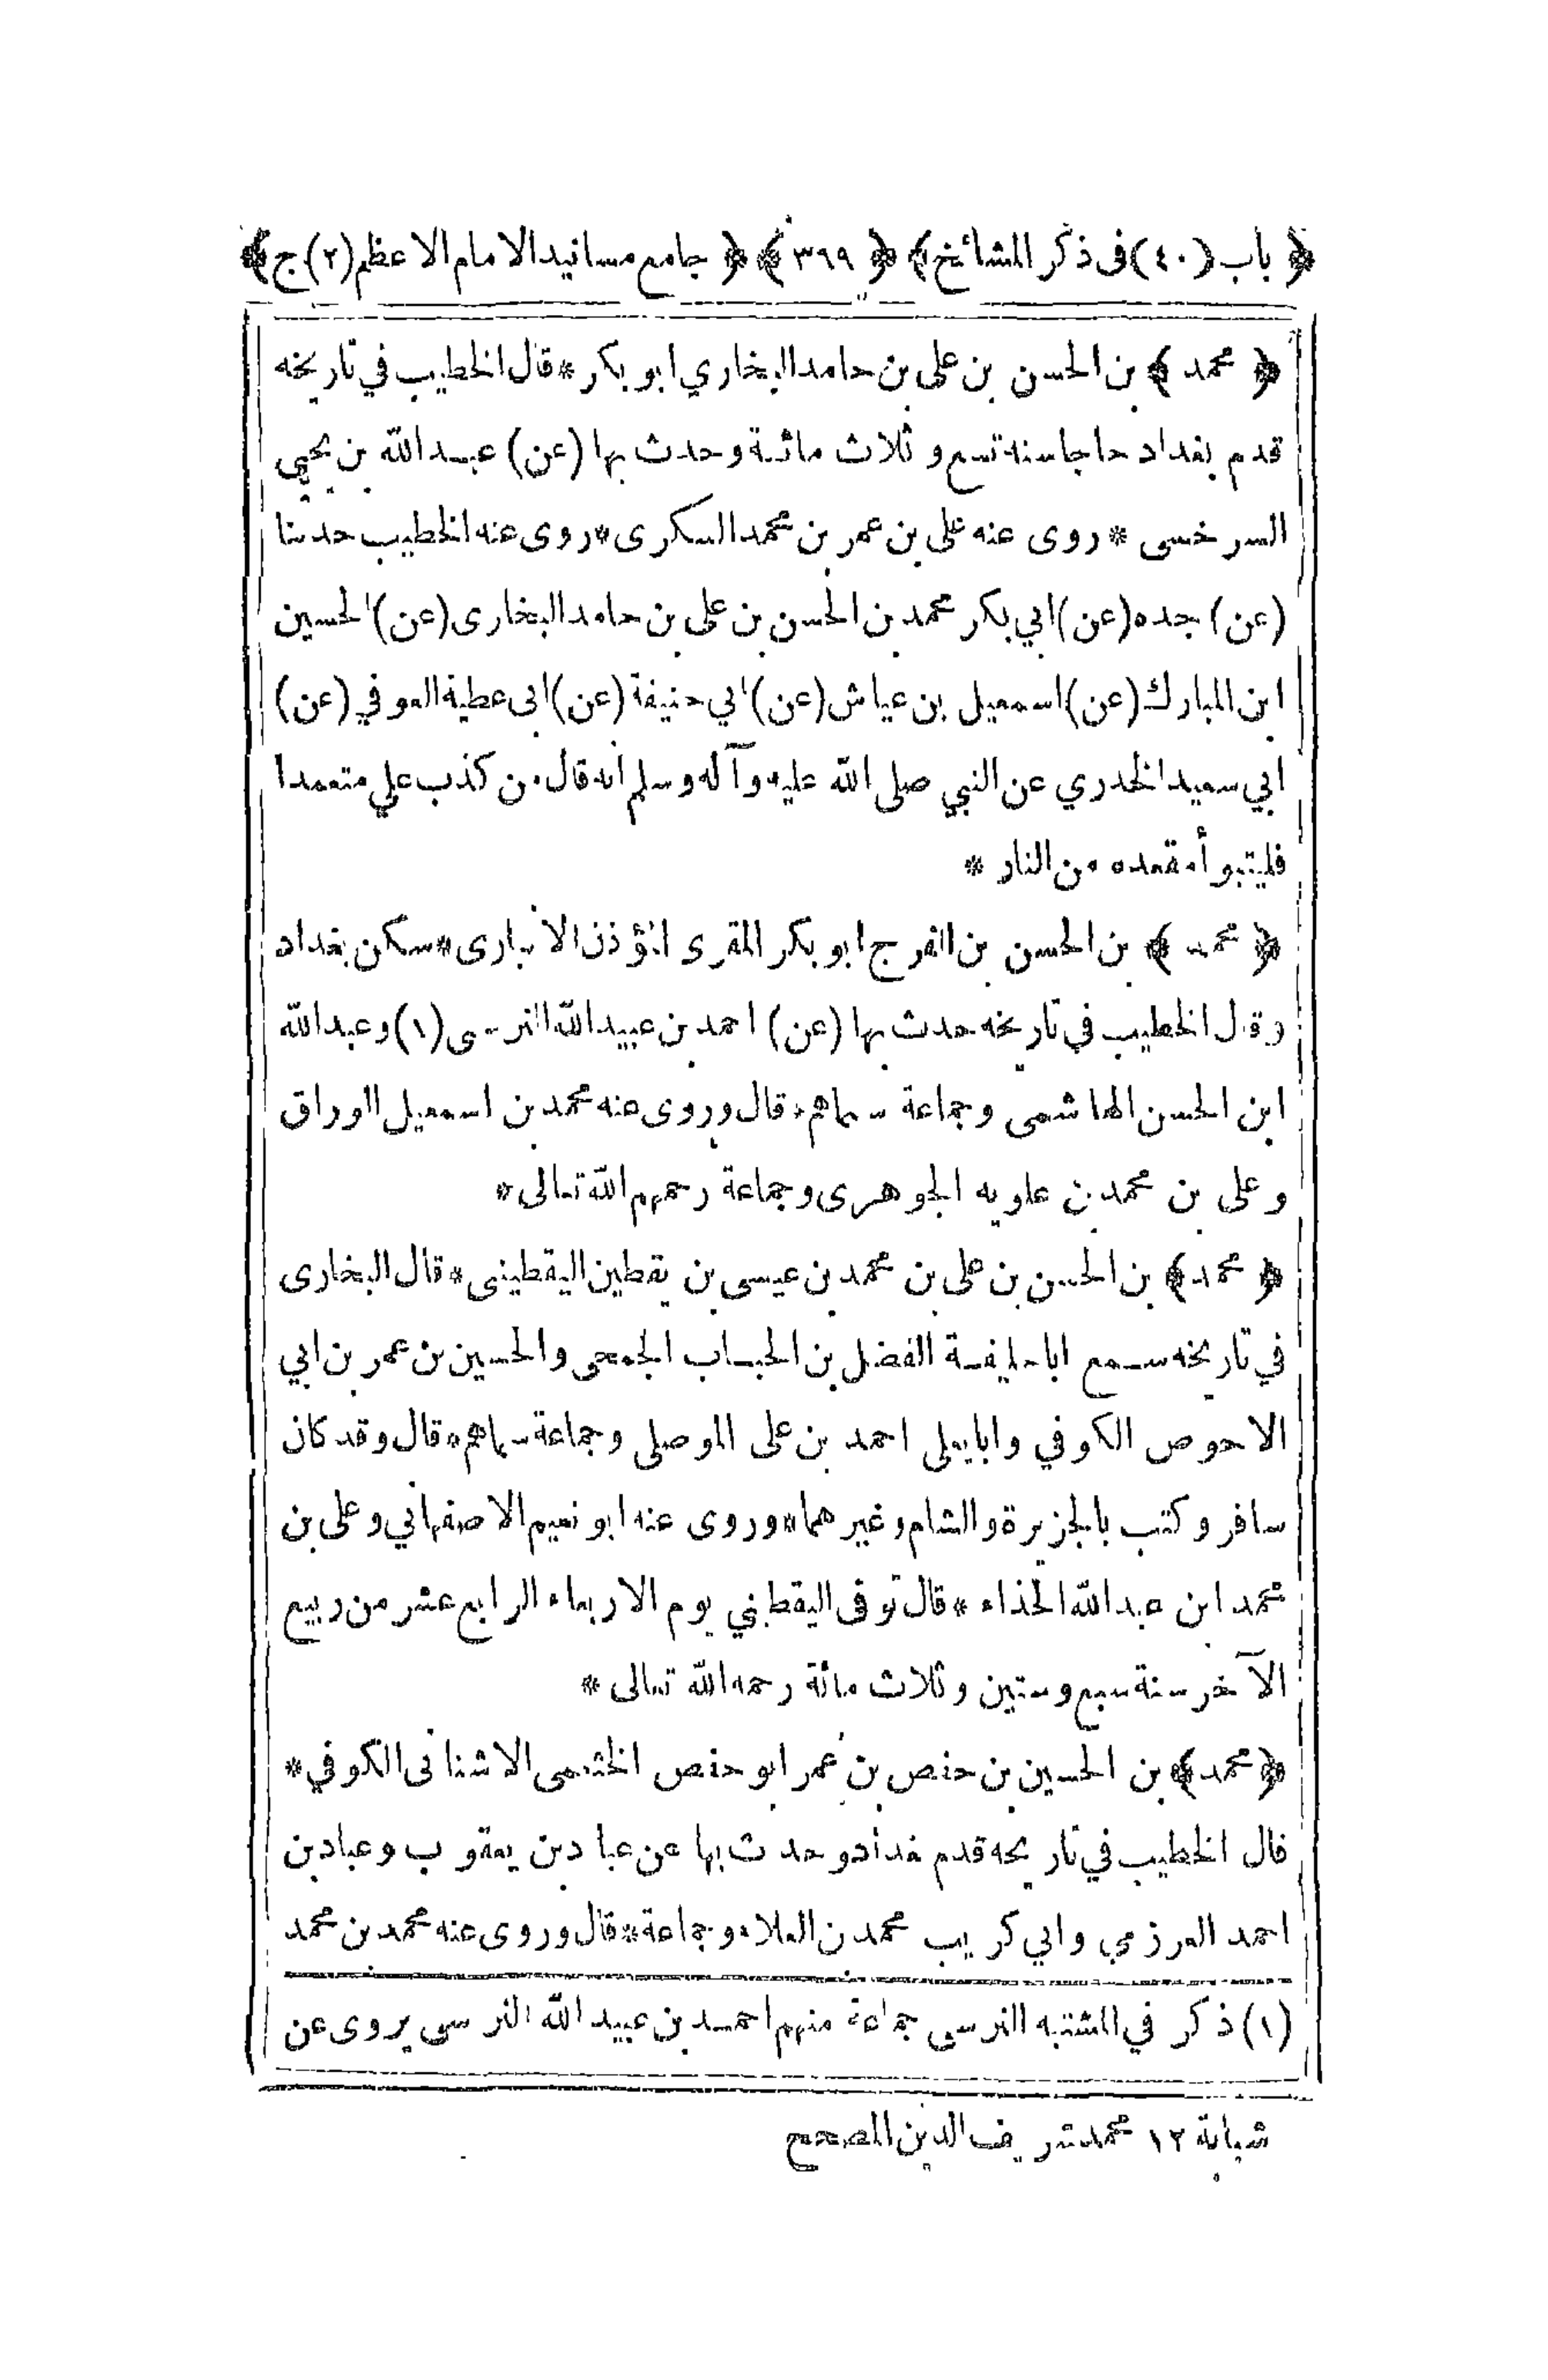 ﴿ باب (٤٠) فى ذكر المشائخ ﴾ ﴿ ٣٩٩ ﴾ ﴿ جامع مسانيد الامام الاعظم (٢) ج ﴾
﴿ محمد ﴾ بن الحسن بن على بن حامد البخاري ابو بكر * قال الخطيب في تاريخه
قدم بغداد حاجا سنة تسع و ثلاث مائة وحدث بها (عن) عبد الله بن يحيى
السرخسى * روى عنه على بن عمر بن محمد السكرى * روى عنه الخطيب حدثنا
(عن) جده (عن) ابي بكر محمد بن الحسن بن على بن حامد البخارى (عن) الحسين
ابن المبارك (عن) اسمعيل بن عياش (عن) ابي حنيفة (عن) ابى عطية العوفي (عن)
ابي سعيد الخدري عن النبي صلى الله عليه وآله وسلم انه قال من كذب علي متعمدا
فليتبوأ مقعده من النار *
﴿ محمد ﴾ بن الحسن بن الفرج ابو بكر المقرى المؤذن الانبارى * سكن بغداد
وقال الخطيب في تاريخه حدث بها (عن) احمد بن عبيد الله النرسى (١) وعبد الله
ابن الحسن الهاشمى وجماعة سماهم * قال وروى عنه محمد بن اسمعيل الوراق
وعلى بن محمد بن علويه الجوهرى وجماعة رحمهم الله تعالى *
﴿ محمد ﴾ بن الحسن بن على بن محمد بن عيسى بن يقطين اليقطينى * قال البخارى
في تاريخه سمع ابا خليفة الفضل بن الحباب الجمحى والحسين بن عمر بن ابي
الاحوص الكوفي وابا يعلى احمد بن على الموصلى وجماعة سماهم * قال وقد كان
سافر وكتب بالجزيرة والشام وغيرهما * وروى عنه ابو نعيم الاصفهاني وعلى بن
محمد ابن عبد الله الحذاء * قال توفى اليقطيني يوم الاربعاء الرابع عشر من ربيع
الآخر سنة سبع وستين وثلاث مائة رحمه الله تعالى *
﴿ محمد ﴾ بن الحسين بن حفص بن عمر ابو حفص الخثعمى الاشنانى الكوفي *
قال الخطيب في تاريخه قدم بغداد وحدث بها عن عباد بن يعقوب وعباد بن
احمد العرزمي وابي كريب محمد بن العلاء وجماعة * قال وروى عنه محمد بن محمد
(١) ذكر في المشتبه النرسى جماعة منهم احمد بن عبيد الله النرسى يروى عن
شبابة ١٢ محمد شريف الدين المصحح